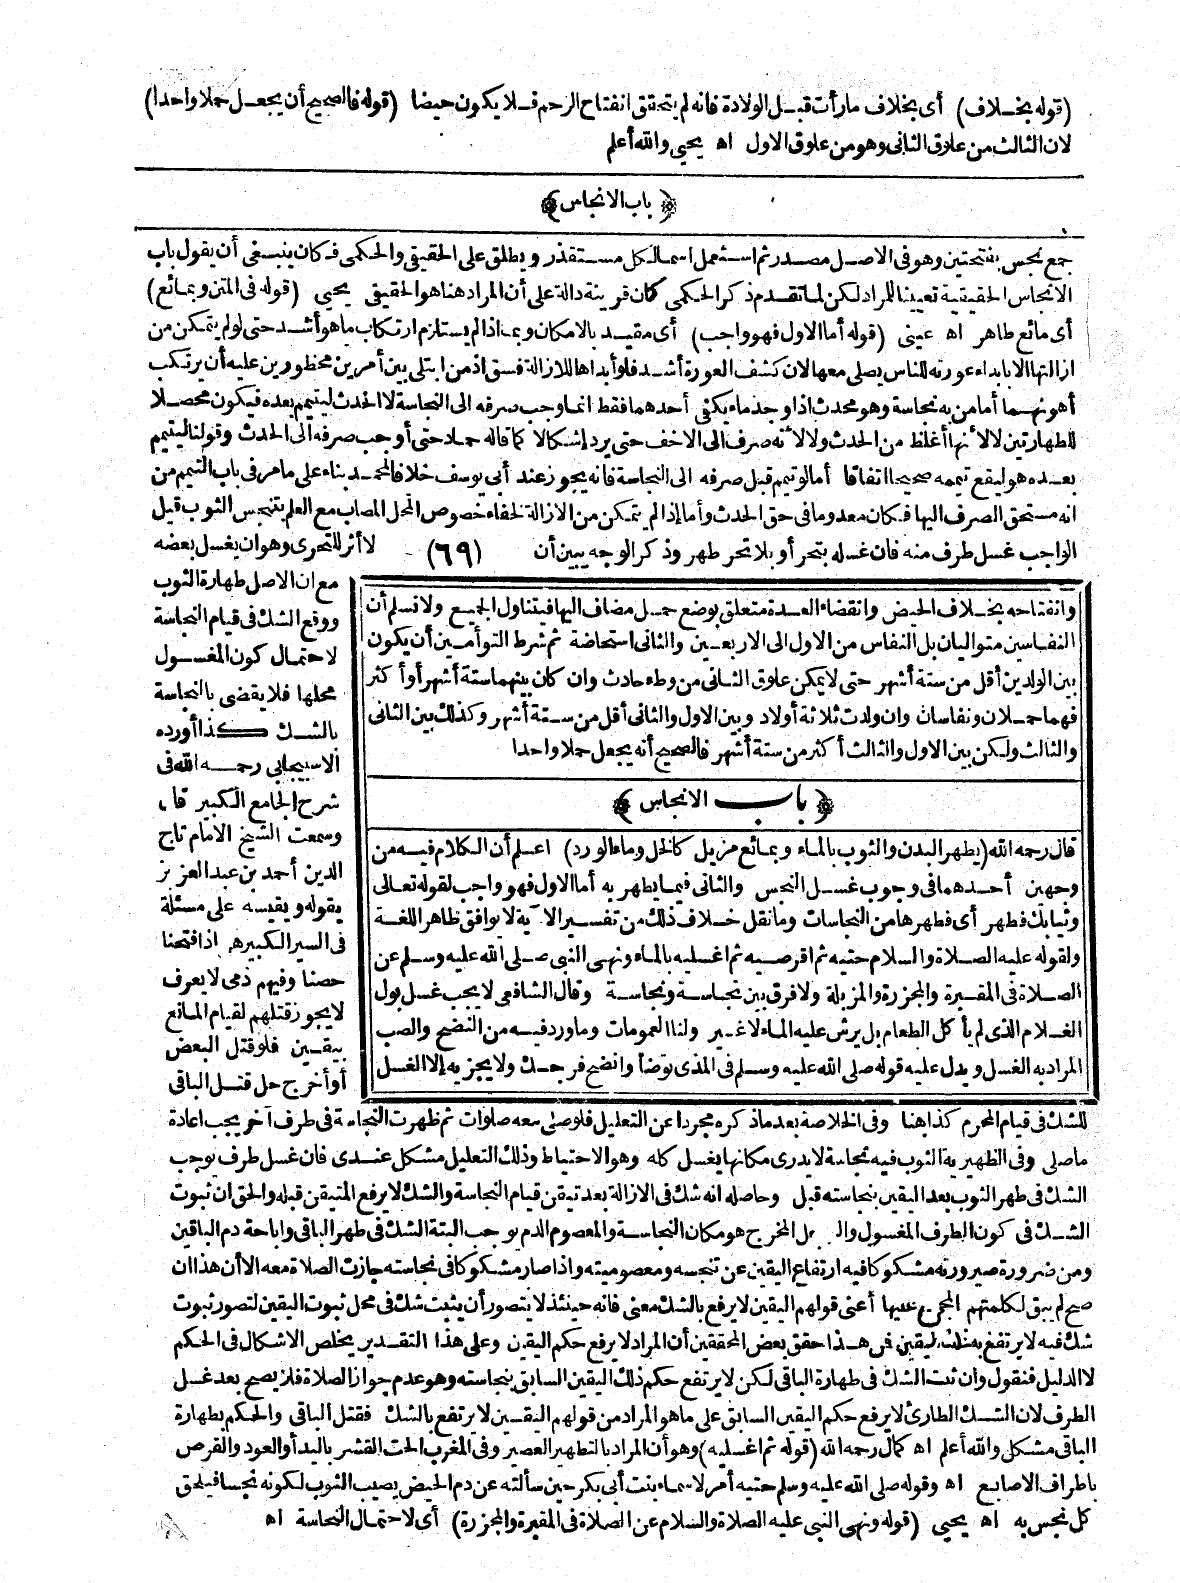 (قوله بخلاف) أى بخلاف مارأت قبل الولادة فانه لم يتحقق انفتاح الرحم فلا يكون حيضا (قوله فالصحيح أن يجعل حملا واحدا)
لان الثالث من علوق الثانى وهو من علوق الاول اه يحيى والله أعلم
﴿باب الانجاس﴾
جمع نجس بفتحتين وهو فى الاصل مصدر ثم استعمل اسما لكل مستقذر ويطلق على الحقيقى والحكمى فكان ينبغى أن يقول باب
الانجاس الحقيقية تعيينا للمراد لكن لما تقدم ذكر الحكمى كان قرينة دالة على أن المراد هنا هو الحقيقى يحيى (قوله فى المتن وبمائع)
أى مائع طاهر اه عينى (قوله أما الاول فهو واجب) أى مقيد بالامكان وبما اذا لم يستلزم ارتكاب ما هو أشد حتى لو لم يتمكن من
ازالتها الا بابداء عورته للناس يصلى معها لان كشف العورة أشد فلو أبداها للازالة فسق اذ من ابتلى بين أمرين محظورين عليه أن يرتكب
أهونهما أما من به نجاسة وهو محدث اذا وجد ماء يكفى أحدهما فقط انما وجب صرفه الى النجاسة لا الحدث ليتيمم بعده فيكون محصلا
للطهارتين لا لأنها أغلظ من الحدث ولا لأنه صرف الى الاخف حتى يرد إشكالا كما قاله حماد حتى أوجب صرفه الى الحدث وقولنا ليتيمم
بعده هو ليقع تيممه صحيحا اتفاقا أما لو تيمم قبل صرفه الى النجاسة فانه يجوز عند أبى يوسف خلافا لمحمد بناء على ما مر فى باب التيمم من
انه مستحق الصرف اليها فكان معدوما فى حق الحدث وأما إذا لم يتمكن من الازالة لخفاء خصوص المحل المصاب مع العلم بتنجس الثوب قيل
الواجب غسل طرف منه فان غسله بتحر أو بلا تحر طهر وذكر الوجه يبين أن (٦٩) لا أثر للتحرى وهو ان يغسل بعضه
مع ان الاصل طهارة الثوب
ووقع الشك فى قيام النجاسة
لاحتمال كون المغسول
محلها فلا يقضى بالنجاسة
بالشك كذا أورده
الاسبيجابى رحمه الله فى
شرح الجامع الكبير قال
وسمعت الشيخ الامام تاج
الدين أحمد بن عبد العزيز
يقوله ويقيسه على مسئلة
فى السير الكبير هى اذا فتحنا
حصنا وفيهم ذمى لا يعرف
لا يجوز قتلهم لقيام المانع
بيقين فلو قتل البعض
أو أخرج حل قتل الباقى
وانفتاحه بخلاف الحيض وانقضاء العدة متعلق بوضع حمل مضاف اليها فيتناول الجميع ولا نسلم أن
النفاسين متواليان بل النفاس من الاول الى الاربعين والثانى استحاضة ثم شرط التوأمين أن يكون
بين الولدين أقل من ستة أشهر حتى لا يمكن علوق الثانى من وطء حادث وان كان بينهما ستة أشهر أو أكثر
فهما حملان ونفاسان وان ولدت ثلاثة أولاد وبين الاول والثانى أقل من ستة أشهر وكذلك بين الثانى
والثالث ولكن بين الاول والثالث أكثر من ستة أشهر فالصحيح أنه يجعل حملا واحدا
﴿باب الانجاس﴾
قال رحمه الله (يطهر البدن والثوب بالماء وبمائع مزيل كالخل وماء الورد) اعلم أن الكلام فيه من
وجهين أحدهما فى وجوب غسل النجس والثانى فيما يطهر به أما الاول فهو واجب لقوله تعالى
وثيابك فطهر أى فطهرها من النجاسات وما نقل خلاف ذلك من تفسير الآية لا يوافق ظاهر اللغة
ولقوله عليه الصلاة والسلام حتيه ثم اقرصيه ثم اغسليه بالماء ونهى النبى صلى الله عليه وسلم عن
الصلاة فى المقبرة والمجزرة والمزبلة ولا فرق بين نجاسة ونجاسة وقال الشافعى لا يجب غسل بول
الغلام الذى لم يأكل الطعام بل يرش عليه الماء لا غير ولنا العمومات وما ورد فيه من النضح والصب
المراد به الغسل ويدل عليه قوله صلى الله عليه وسلم فى المذى توضأ وانضح فرجك ولا يجزيه إلا الغسل
للشك فى قيام المحرم كذا هنا وفى الخلاصة بعد ما ذكره مجردا عن التعليل فلو صلى معه صلوات ثم ظهرت النجاسة فى طرف آخر يجب اعادة
ما صلى وفى الظهيرية الثوب فيه نجاسة لا يدرى مكانها يغسل كله وهو الاحتياط وذلك التعليل مشكل عندى فان غسل طرف يوجب
الشك فى طهر الثوب بعد اليقين بنجاسته قبل وحاصله انه شك فى الازالة بعد تيقن قيام النجاسة والشك لا يرفع المتيقن قبله والحق ان ثبوت
الشك فى كون الطرف المغسول والرجل المخرج هو مكان النجاسة والمعصوم الدم يوجب البتة الشك فى طهر الباقى واباحة دم الباقين
ومن ضرورة صيرورته مشكوكا فيه ارتفاع اليقين عن تنجسه ومعصوميته واذا صار مشكوكا فى نجاسته جازت الصلاة معه الا أن هذا ان
صح لم يبق لكلمتهم المجمع عليها أعنى قولهم اليقين لا يرفع بالشك معنى فانه حينئذ لا يتصور أن يثبت شك فى محل ثبوت اليقين لتصور ثبوت
شك فيه لا يرتفع به ذلك اليقين فمن هذا حقق بعض المحققين أن المراد لا يرفع حكم اليقين وعلى هذا التقدير يخلص الاشكال فى الحكم
لا الدليل فنقول وان ثبت الشك فى طهارة الباقى لكن لا يرتفع حكم ذلك اليقين السابق بنجاسته وهو عدم جواز الصلاة فلا يصح بعد غسل
الطرف لان الشك الطارئ لا يرفع حكم اليقين السابق على ما هو المراد من قولهم اليقين لا يرتفع بالشك فقتل الباقى والحكم بطهارة
الباقى مشكل والله أعلم اه كمال رحمه الله (قوله ثم اغسليه) وهو أن المراد بالتطهير العصير وفى المغرب الحت القشر باليد أو العود والقرص
باطراف الاصابع اه وقوله صلى الله عليه وسلم حتيه أمر لاسماء بنت أبى بكر حين سألته عن دم الحيض يصيب الثوب لكونه نجسا فيلحق
كل نجس به اه يحيى (قوله ونهى النبى عليه الصلاة والسلام عن الصلاة فى المقبرة والمجزرة) أى لاحتمال النجاسة اه